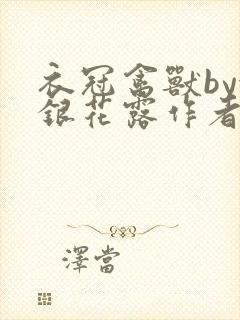 衣冠禽獸by
銀花露作者
澤當